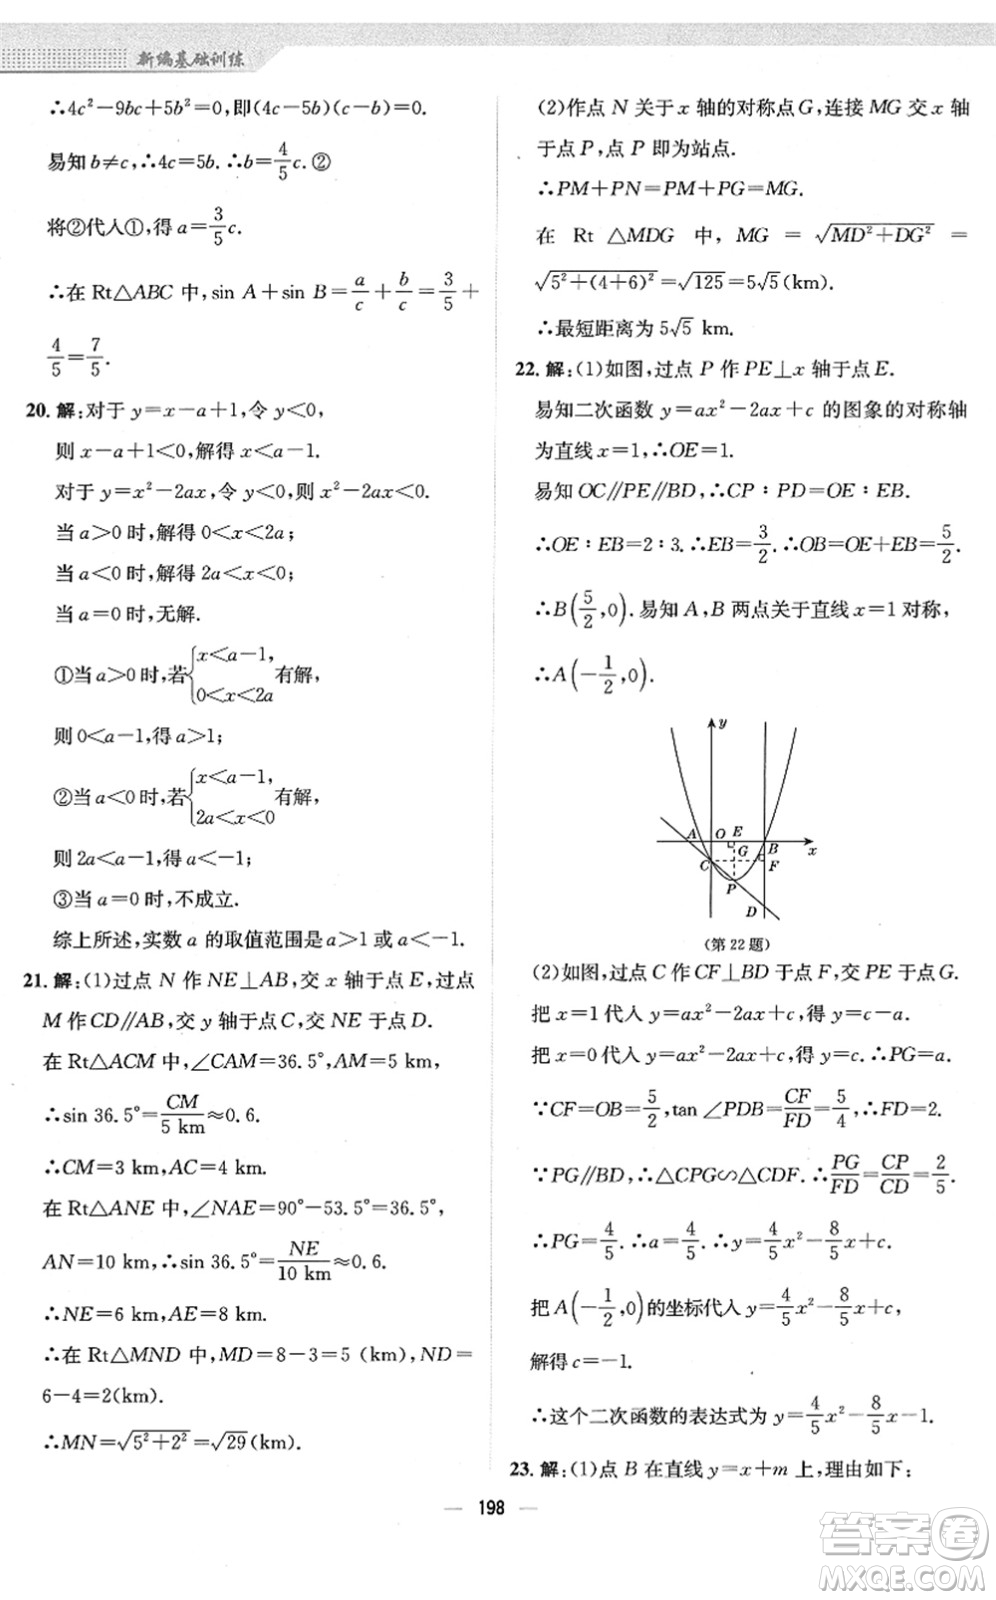 新编基础训练
∴4c²－9bc＋5b²＝0,即(4c－5b)(c－b)＝0.
易知 b≠c,∴4c＝5b.∴b＝4/5 c.②
将②代入①,得 a＝3/5 c.
∴在 Rt△ABC 中,sin A＋sin B＝a/c＋b/c＝3/5＋
4/5＝7/5.
20. 解:对于 y＝x－a＋1,令 y＜0,
则 x－a＋1＜0,解得 x＜a－1.
对于 y＝x²－2ax,令 y＜0,则 x²－2ax＜0.
当 a＞0 时,解得 0＜x＜2a;
当 a＜0 时,解得 2a＜x＜0;
当 a＝0 时,无解.
①当 a＞0 时,若{x＜a－1, 0＜x＜2a 有解,
则 0＜a－1,得 a＞1;
②当 a＜0 时,若{x＜a－1, 2a＜x＜0 有解,
则 2a＜a－1,得 a＜－1;
③当 a＝0 时,不成立.
综上所述,实数 a 的取值范围是 a＞1 或 a＜－1.
21. 解:(1)过点 N 作 NE⊥AB,交 x 轴于点 E,过点
M 作 CD∥AB,交 y 轴于点 C,交 NE 于点 D.
在 Rt△ACM 中,∠CAM＝36.5°,AM＝5 km,
∴sin 36.5°＝CM/5 km≈0.6.
∴CM＝3 km,AC＝4 km.
在 Rt△ANE 中,∠NAE＝90°－53.5°＝36.5°,
AN＝10 km,∴sin 36.5°＝NE/10 km≈0.6.
∴NE＝6 km,AE＝8 km.
∴在 Rt△MND 中,MD＝8－3＝5 (km),ND＝
6－4＝2(km).
∴MN＝√(5²＋2²)＝√29(km).
(2)作点 N 关于 x 轴的对称点 G,连接 MG 交 x 轴
于点 P,点 P 即为站点.
∴PM＋PN＝PM＋PG＝MG.
在 Rt △MDG 中, MG ＝ √(MD²＋DG²) ＝
√(5²＋(4＋6)²)＝√125＝5√5(km).
∴最短距离为 5√5 km.
22. 解:(1)如图,过点 P 作 PE⊥x 轴于点 E.
易知二次函数 y＝ax²－2ax＋c 的图象的对称轴
为直线 x＝1,∴OE＝1.
易知 OC∥PE∥BD,∴CP∶PD＝OE∶EB.
∴OE∶EB＝2∶3.∴EB＝3/2.∴OB＝OE＋EB＝5/2.
∴B(5/2,0).易知 A,B 两点关于直线 x＝1 对称,
∴A(－1/2,0).
y
A O E B x
G
C F
P
D
(第 22 题)
(2)如图,过点 C 作 CF⊥BD 于点 F,交 PE 于点 G.
把 x＝1 代入 y＝ax²－2ax＋c,得 y＝c－a.
把 x＝0 代入 y＝ax²－2ax＋c,得 y＝c.∴PG＝a.
∵CF＝OB＝5/2,tan ∠PDB＝CF/FD＝5/4,∴FD＝2.
∵PG∥BD,∴△CPG∽△CDF.∴PG/FD＝CP/CD＝2/5.
∴PG＝4/5.∴a＝4/5.∴y＝4/5 x²－8/5 x＋c.
把 A(－1/2,0)的坐标代入 y＝4/5 x²－8/5 x＋c,
解得 c＝－1.
∴这个二次函数的表达式为 y＝4/5 x²－8/5 x－1.
23. 解:(1)点 B 在直线 y＝x＋m 上,理由如下:
— 198 —
答案卷
MXQE.COM